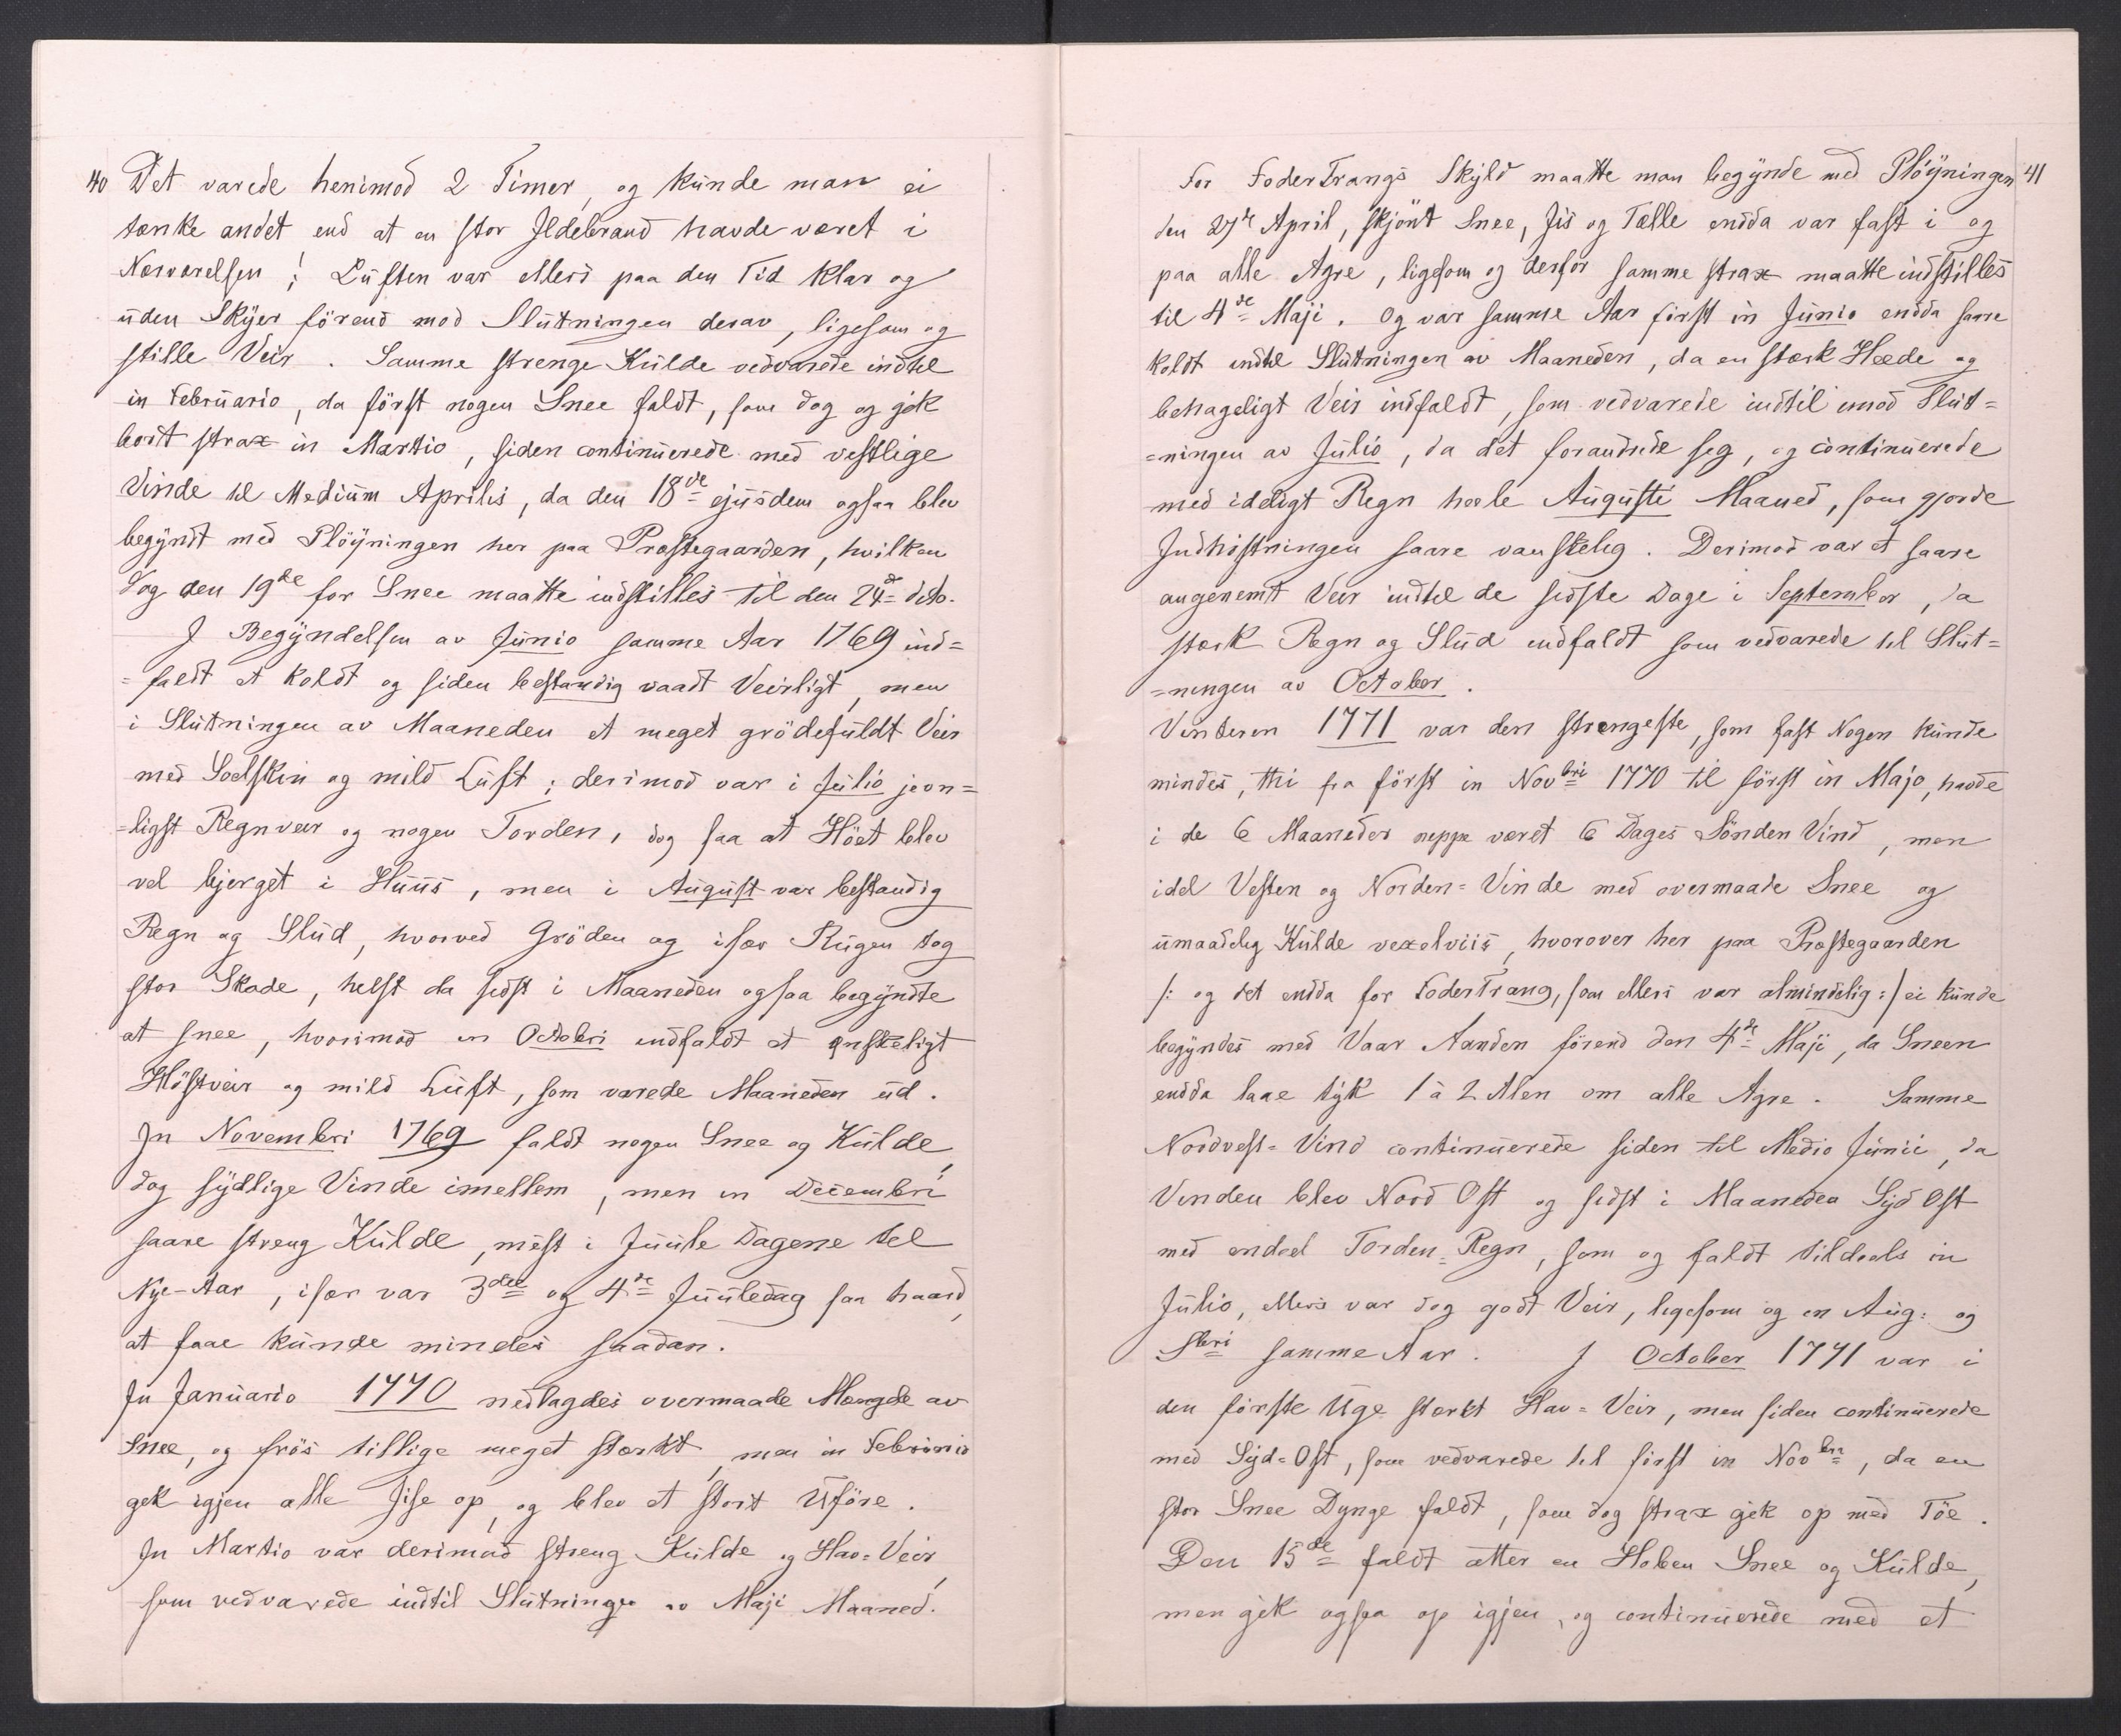 40 Det varede henimod 2 Timer, og kunde man ei
tænke andet end at en stor Ildebrand havde været i
Nærværelsen ; Luften var ellers paa den Tid klar og
uden Skyer förend mod Slutningen derav, ligesom og
stille Veir . Samme strenge Kulde vedvarede indtil
in Februario, da först nogen Snee faldt, som dog og gik
bort strax in Martio, siden continuerede med vestlige
Vinde til Medium Aprilis, da den 18de ejusdem ogsaa blev
begyndt med Plöyningen her paa Præstegaarden, hvilken
dog den 19de for Snee maatte indstilles til den 24de dito.
I Begyndelsen av Junio samme Aar 1769 ind=
=faldt et koldt og siden bestandig vaadt Veirligt, men
i Slutningen av Maaneden et meget grödefuldt Veir
med Soelskin og mild Luft ; derimod var i Julio jevn=
=ligst Regnveir og nogen Torden, dog saa at Höet blev
vel bjerget i Huus, men i August var bestandig
Regn og Slud, hvorved Gröden og især Rugen tog
stor Skade, helst da sidst i Maaneden ogsaa begyndte
at snee, hvorimod in Octobri indfaldt et ønskeligt
Höstveir og mild Luft, som varede Maaneden ud.
In Novembri 1769 faldt nogen Snee og Kulde,
dog sydlige Vinde imellem, men in Decembri
saare streng Kulde, mest i Juule Dagene til
Nye-Aar, især var 3die og 4de Juuledag saa haard,
at faae kunde mindes saadan.
In Januario 1770 nedlagdes overmaade Mængde av
Snee, og frös tillige meget stærkt, men in Februario
gik igjen alle Jise op, og blev et stort Uföre.
In Martio var derimod streng Kulde og Hav=Veir,
som vedvarede indtil Slutningen av Maji Maaned.
For FoderTrangs Skyld maatte man begynde med Plöyningen 41
den 27de April, skjönt Snee, Jis og Tælle endda var fast i og
paa alle Agre, ligesom og derfor samme strax maatte indstilles
til 4de Maji. Og var samme Aar först in Junio endda saare
koldt indtil Slutningen av Maaneden, da en stærk Heede og
behageligt Veir indfaldt, som vedvarede indtil imod Slut=
=ningen av Julio, da det forandrede seg, og continuerede
med ideligt Regn heele Augusti Maaned, som gjorde
Indhöstningen saare vanskelig. Derimod var et saare
angenemt Veir indtil de sidste Dage i September, da
stærk Regn og Slud indfaldt som vedvarede til Slut=
=ningen av October.
Vinteren 1771 var den strengeste, som fast Nogen kunde
mindes, thi fra först in Novbri 1770 til först in Majo, havde
i de 6 Maaneder neppe været 6 Dages Sönden Vind, men
idel Vesten og Norden=Vinde med overmaade Snee og
umaadelig Kulde vexelviis, hvorover her paa Præstegaarden
/: og det endda for FoderTrang, som ellers var almindelig :/ ei kunde
begyndes med Vaar Aanden förend den 4de Maji, da Sneen
endda laae tyk 1 à 2 Alen om alle Agre. Samme
Nordvest=Vind continuerede siden til Medio Junii, da
Vinden blev Nord Ost og sidst i Maaneden Syd Ost
med endeel Torden=Regn, som og faldt tildeels in
Julio, ellers var dog godt Veir, ligesom og in Aug: og
Sbri samme Aar. I October 1771 var i
den förste Uge stærkt Hav=Veir, men siden continuerede
med Syd=Ost, som vedvarede til först in Novbri, da en
stor Snee Dynge faldt, som dog strax gik op med Töe.
Den 15de faldt atter en Hoben Snee og Kulde,
men gik ogsaa op igjen, og continuerede med et